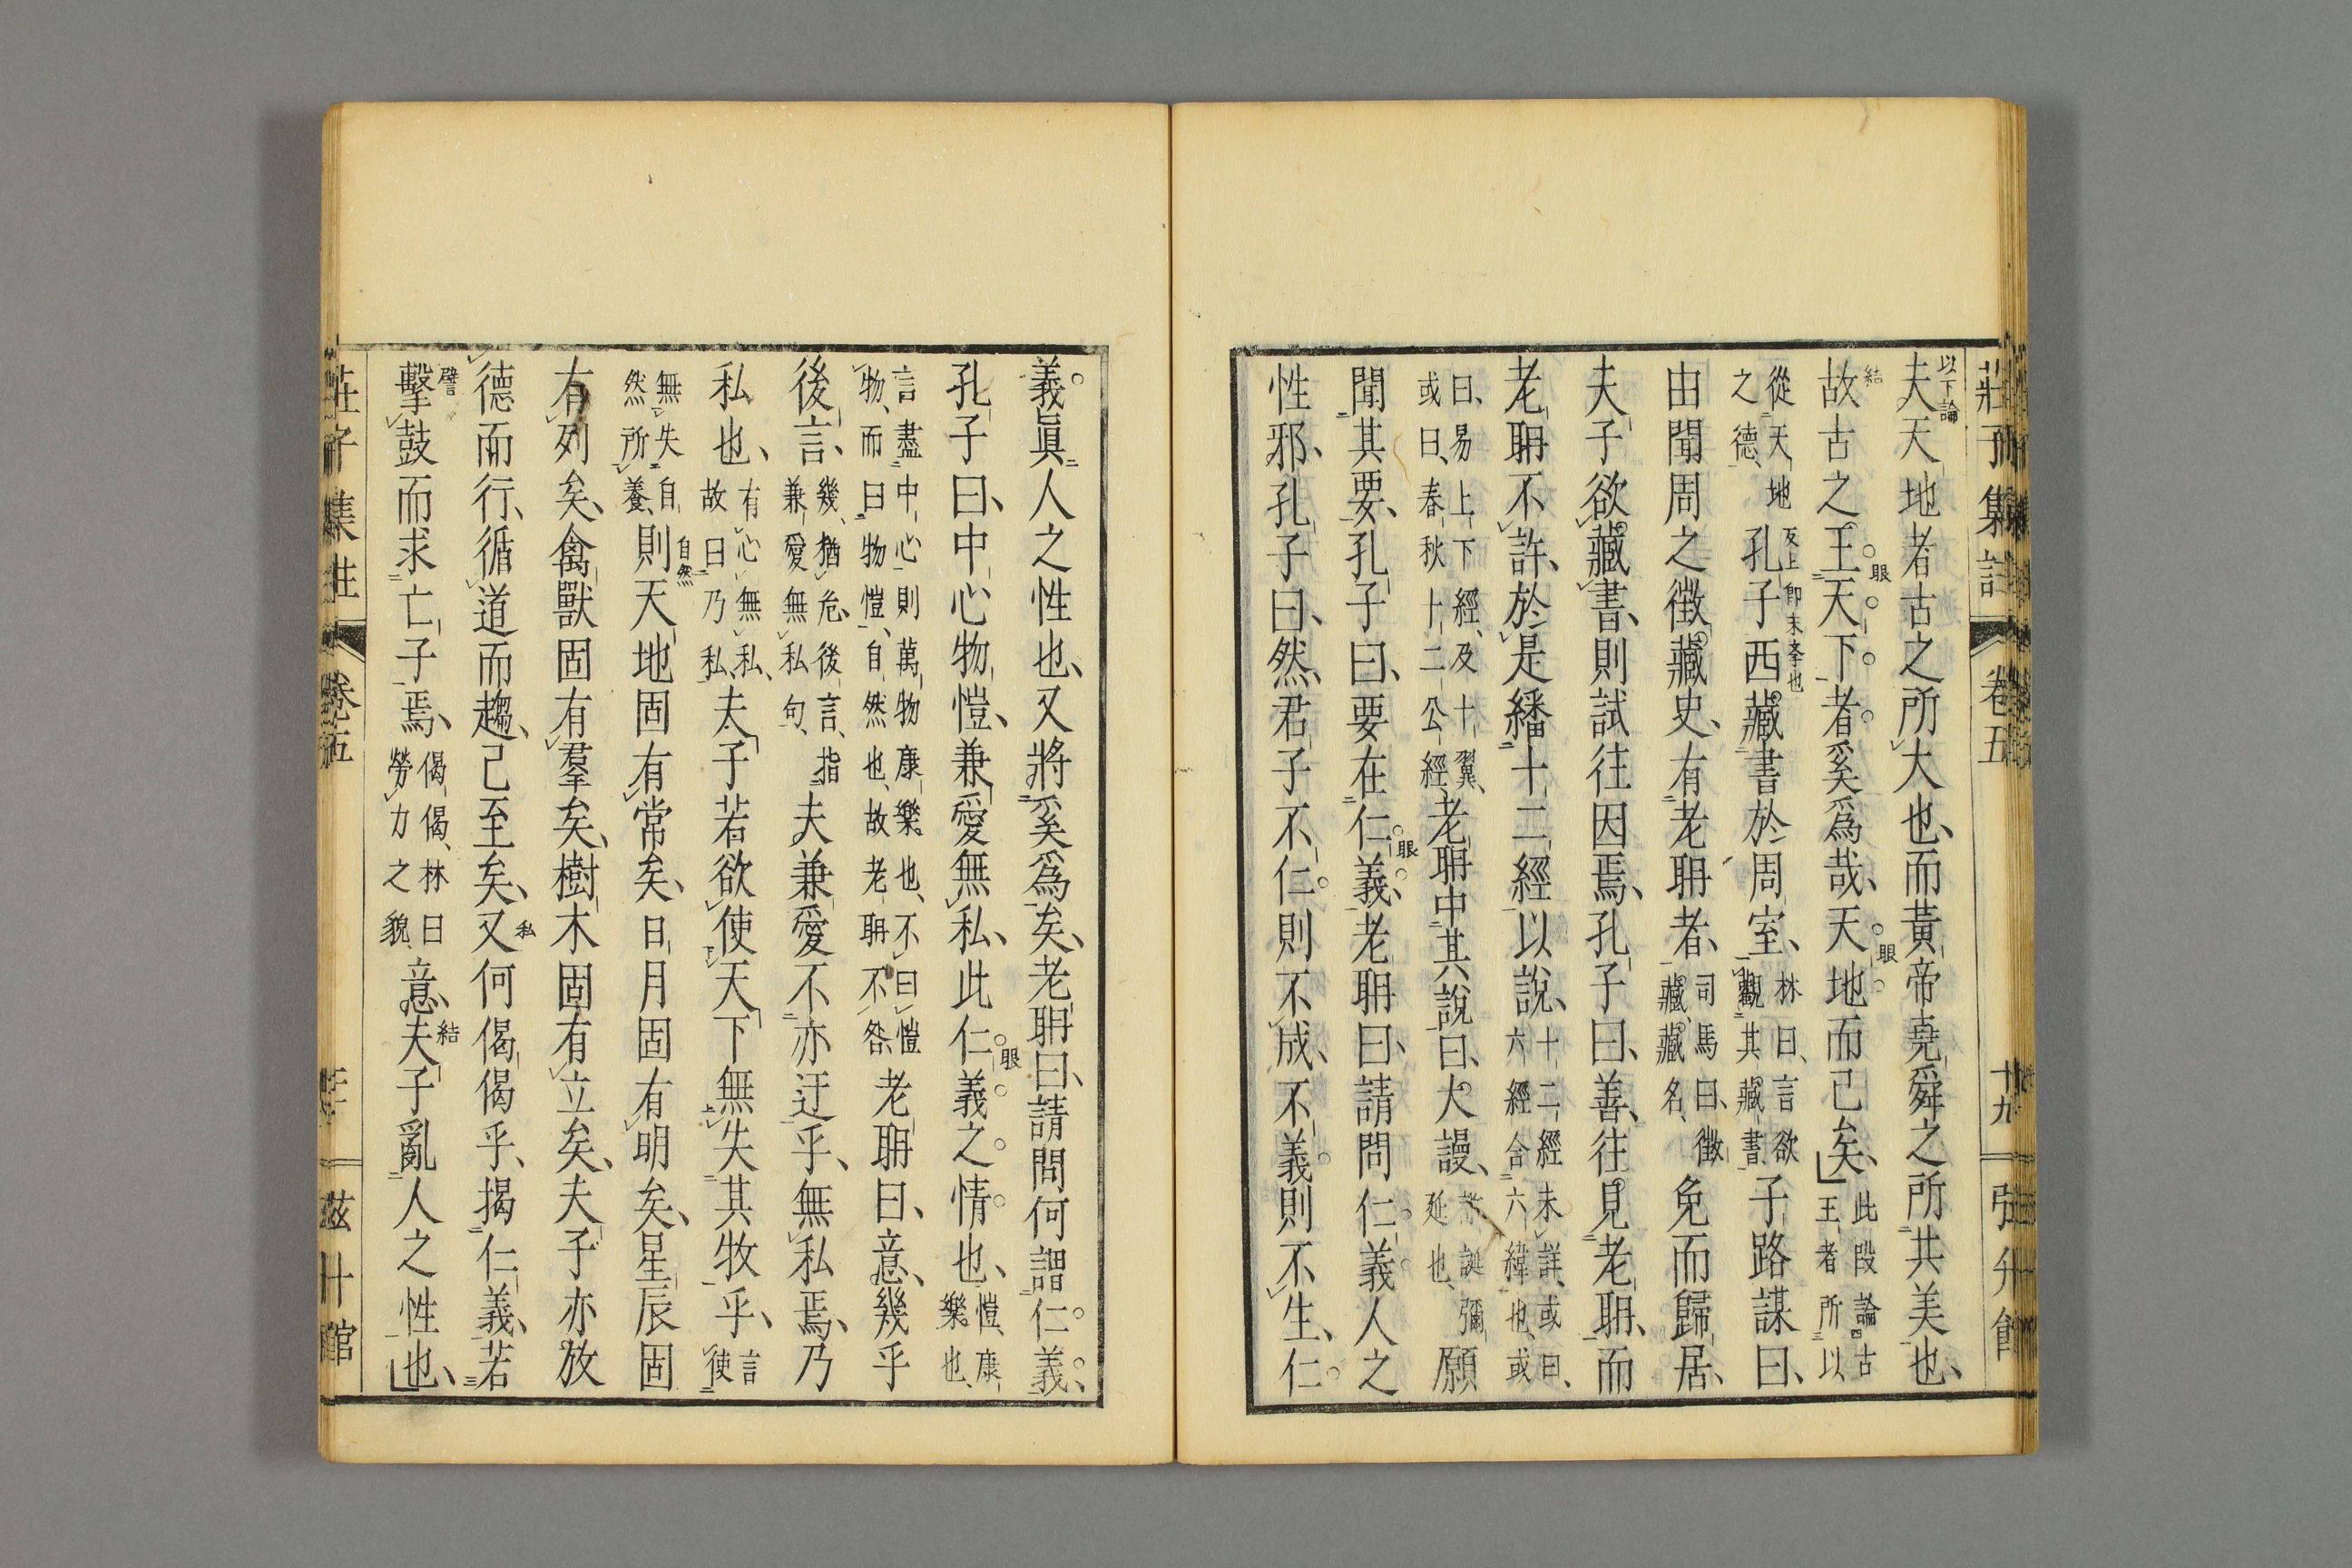 莊子集註 卷五 十九
以下論
夫天地者古之所大也、而黃帝堯舜之所共美也、
結
故古之王天下者奚爲哉、天地而已矣、此段論古王者所以
眼
眼
從天地之德、孔子西藏書於周室、林曰、言欲觀其藏書、子路謀曰、
由聞周之徵藏史、有老聃者、司馬曰、徵藏、藏名、免而歸居、
夫子欲藏書、則試往因焉、孔子曰、善、往見老聃、而
老聃不許、於是繙十二經以說、十二經未詳、或曰、六經合六緯也、或
曰、易上下經、及十翼、或曰、春秋十二公經、老聃中其說曰、大謾、延也、願
聞其要、孔子曰、要在仁義、老聃曰、請問仁義人之
眼
性邪、孔子曰、然、君子不仁則不成、不義則不生、仁
義眞人之性也、又將奚爲矣、老聃曰、請問何謂仁義、
孔子曰、中心物愷、兼愛無私、此仁義之情也、愷、康樂也、
眼
言盡中心則萬物康樂也、不曰愷物、而曰物愷、自然也、故老聃不咎、老聃曰、意、幾乎
後言、幾、猶危、後言、指兼愛無私句、夫兼愛不亦迂乎、無私焉、乃
私也、有心無私、故曰乃私、夫子若欲使天下無失其牧乎、言使
無失自然所養、則天地固有常矣、日月固有明矣、星辰固
自然
有列矣、禽獸固有羣矣、樹木固有立矣、夫子亦放
德而行、循道而趨、已至矣、又何偈偈乎、揭仁義、若
私
譬
擊鼓而求亡子焉、偈偈、林曰勞力之貌、意、夫子亂人之性也、
結
莊子集註 卷五